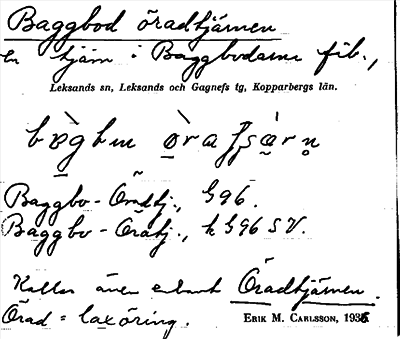 Baggbod öradtjärnen
En tjärn i Baggbodarne fäb.,
Leksands sn, Leksands och Gagnefs tg, Kopparbergs län.
Baggbo-Öradtj., G96.
Baggbo-Öratj., k G96 SV.
Kallas även enbart Öradtjärnen.
Örad = laxöring. ERIK M. CARLSSON, 1935